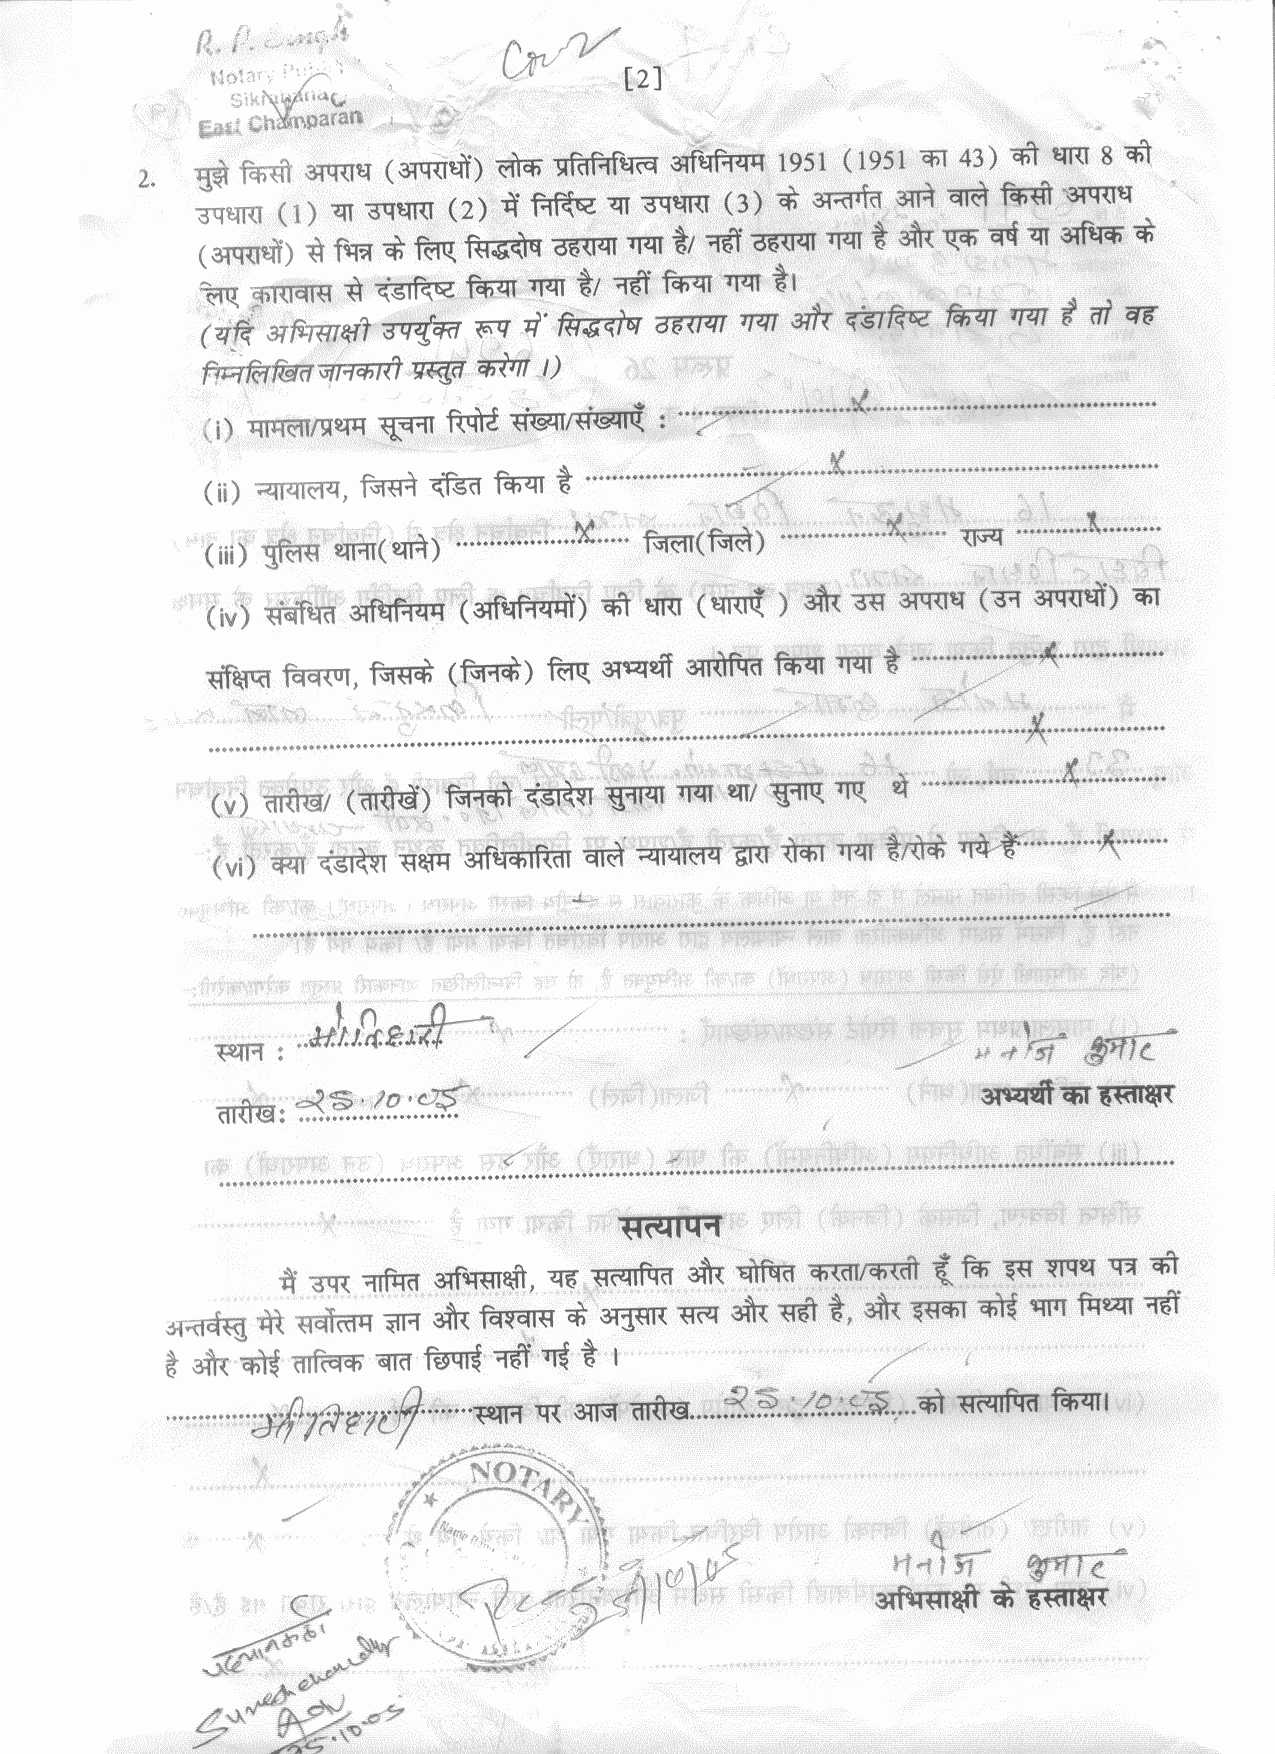 R. P. Singh
Notary Public
Sikrahana
East Champaran
[2]
2. मुझे किसी अपराध (अपराधों) लोक प्रतिनिधित्व अधिनियम 1951 (1951 का 43) की धारा 8 की
उपधारा (1) या उपधारा (2) में निर्दिष्ट या उपधारा (3) के अन्तर्गत आने वाले किसी अपराध
(अपराधों) से भिन्न के लिए सिद्धदोष ठहराया गया है/ नहीं ठहराया गया है और एक वर्ष या अधिक के
लिए कारावास से दंडादिष्ट किया गया है/ नहीं किया गया है।
(यदि अभिसाक्षी उपर्युक्त रूप में सिद्धदोष ठहराया गया और दंडादिष्ट किया गया है तो वह
निम्नलिखित जानकारी प्रस्तुत करेगा ।)
(i) मामला/प्रथम सूचना रिपोर्ट संख्या/संख्याएँ : x
(ii) न्यायालय, जिसने दंडित किया है x
(iii) पुलिस थाना(थाने) x जिला(जिले) x राज्य x
(iv) संबंधित अधिनियम (अधिनियमों) की धारा (धाराएँ ) और उस अपराध (उन अपराधों) का
संक्षिप्त विवरण, जिसके (जिनके) लिए अभ्यर्थी आरोपित किया गया है x
x
(v) तारीख/ (तारीखें) जिनको दंडादेश सुनाया गया था/ सुनाए गए थे x
(vi) क्या दंडादेश सक्षम अधिकारिता वाले न्यायालय द्वारा रोका गया है/रोके गये हैं x
स्थान : मोतिहारी
मनोज कुमार
तारीख: २५.10.०५
अभ्यर्थी का हस्ताक्षर
सत्यापन
मैं उपर नामित अभिसाक्षी, यह सत्यापित और घोषित करता/करती हूँ कि इस शपथ पत्र की
अन्तर्वस्तु मेरे सर्वोत्तम ज्ञान और विश्वास के अनुसार सत्य और सही है, और इसका कोई भाग मिथ्या नहीं
है और कोई तात्विक बात छिपाई नहीं गई है ।
मोतिहारी स्थान पर आज तारीख २५.10.०५ को सत्यापित किया।
NOTARY
Name
25/10/05
मनोज कुमार
अभिसाक्षी के हस्ताक्षर
Adv
25.10.05